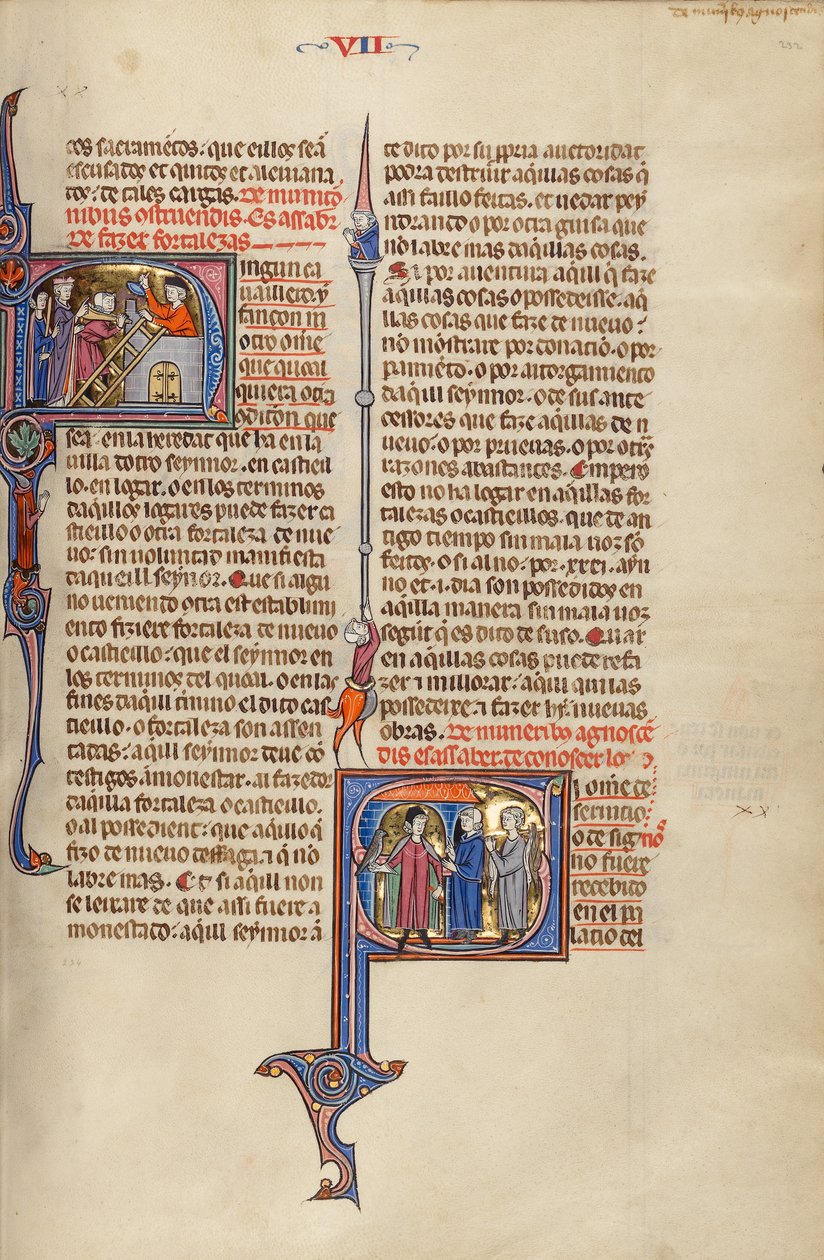 de munẽbꝫ agnoscendis
VII
232
cos sacramẽtos· que eillos seã
escusados et quitos et aleuiana
dos· de tales cargas. De munitio
nibus ostruendis. Es assabr
de fazer fortalezas
Ningun ca
uaillero· yn
fançon ni
otro omẽ
que qual
quiera otra
9dition que
sea· en la heredat que ha en la
uilla dotro seynnor· en castieil
lo· en logar· o en los terminos
daq̃llos logares puede fazer ca
stieillo o otra fortaleza de nue
uo· sin uoluntad manifiesta
daqueill seynor. Que si algu
no ueniendo otra est establimi
ento fiziere fortaleza de nueuo
o castieillo· que el seynnor en
los terminos del qual· o en las
fines daq̃ll timino el dito cas
tieillo· o fortaleza son assen
tadas· aq̃ill seynnor deue cõ
testigos amonestar· al fazedor
daq̃lla fortaleza o castieillo.
o al possedient· que aq̃llo q̃
fizo de nueuo desfaga· ⁊ q̃ nõ
labre mas. Et si aq̃ill non
se leixare de que assi fuere a
monestado· aq̃ill seynnor ã
te dito por su ꝓpria auctoridat
podra destruir aq̃llas cosas q̃
assi faillo feitas. et uedar pey
ndrando o por otra guisa que
nõ labre mas daq̃llas cosas.
Si por auentura aq̃ill q̃ faze
aq̃llas cosas o possedeisse· aq̃
llas cosas que faze de nueuo·
nõ mõstrare por donaciõ· o por
pamiẽto· o por atorgamiento
daq̃ill seynnor· o de sus ante
cessores que faze aq̃llas de n
ueuo· o por prueuas· o por otrͣs
razones abastantes. Empero
esto no ha logar en aq̃llas for
talezas o castieillos· que de an
tigo tiempo sin mala uoz sõ
feitos· o si al no· por· xxxi· ayn
no et· i· dia son posseditos en
aq̃lla manera sin mala uoz
segũt q̃ es dito de suso. Quar
en aq̃llas cosas puede refa
zer ⁊ millorar· aq̃ill qui las
possedeire· ⁊ fazer hy nueuas
obras. De muneribꝫ agnoscẽ
dis es assaber· de conoscer los
Si omẽ de
seruitio·
o de sig nõs
no fuere
recebido
en el pa
lacio del
234